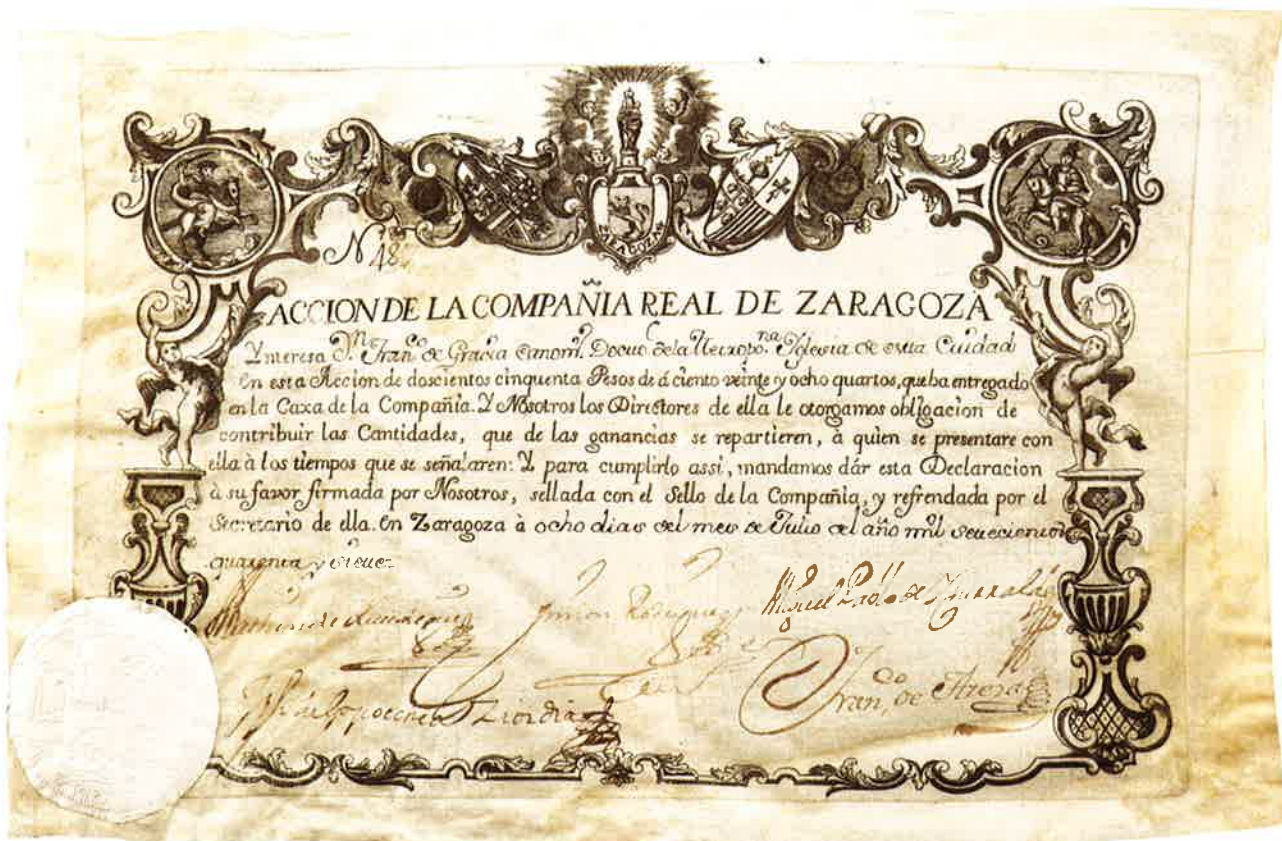 ZARAGOZA
N 48
ACCION DE LA COMPAÑIA REAL DE ZARAGOZA
Ynteresa Dn. Franco. de Gracia Canoni. de la Metropona. Yglesia de esta Ciudad
En esta Accion de doscientos cinquenta Pesos de á ciento veinte y ocho quartos, que ha entregado
en la Caxa de la Compañia. Y Nosotros los Directores de ella le otorgamos obligacion de
contribuir las Cantidades, que de las ganancias se repartieren, à quien se presentare con
ella à los tiempos que se señalaren: Y para cumplirlo assi, mandamos dár esta Declaracion
à su favor firmada por Nosotros, sellada con el Sello de la Compañia, y refrendada por el
Secretario de ella. En Zaragoza à ocho dias del mes de Julio del año mil setecientos
quarenta y siete
Simon Rodriguez
Miguel
Franco. de